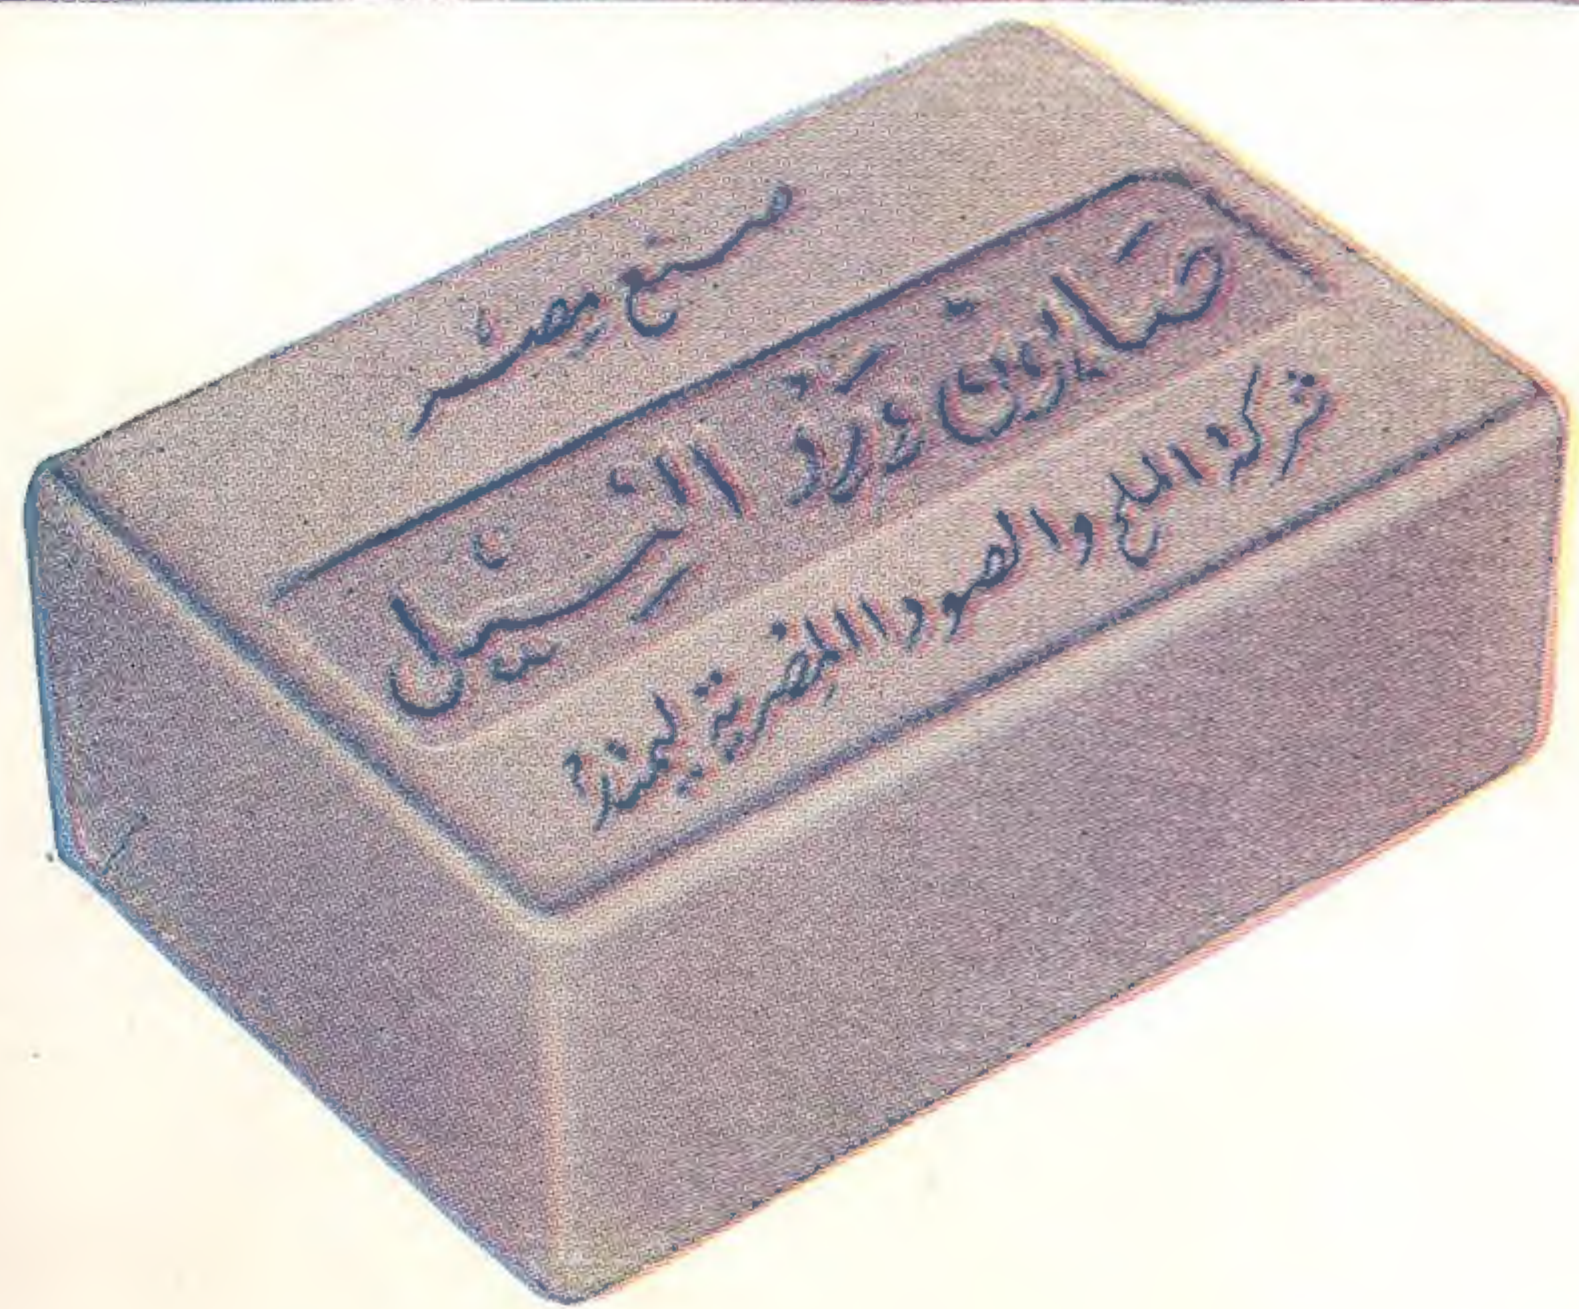 صنع مصر
صابون ورد النيل
شركة الملح والصودا المصرية ليمتد